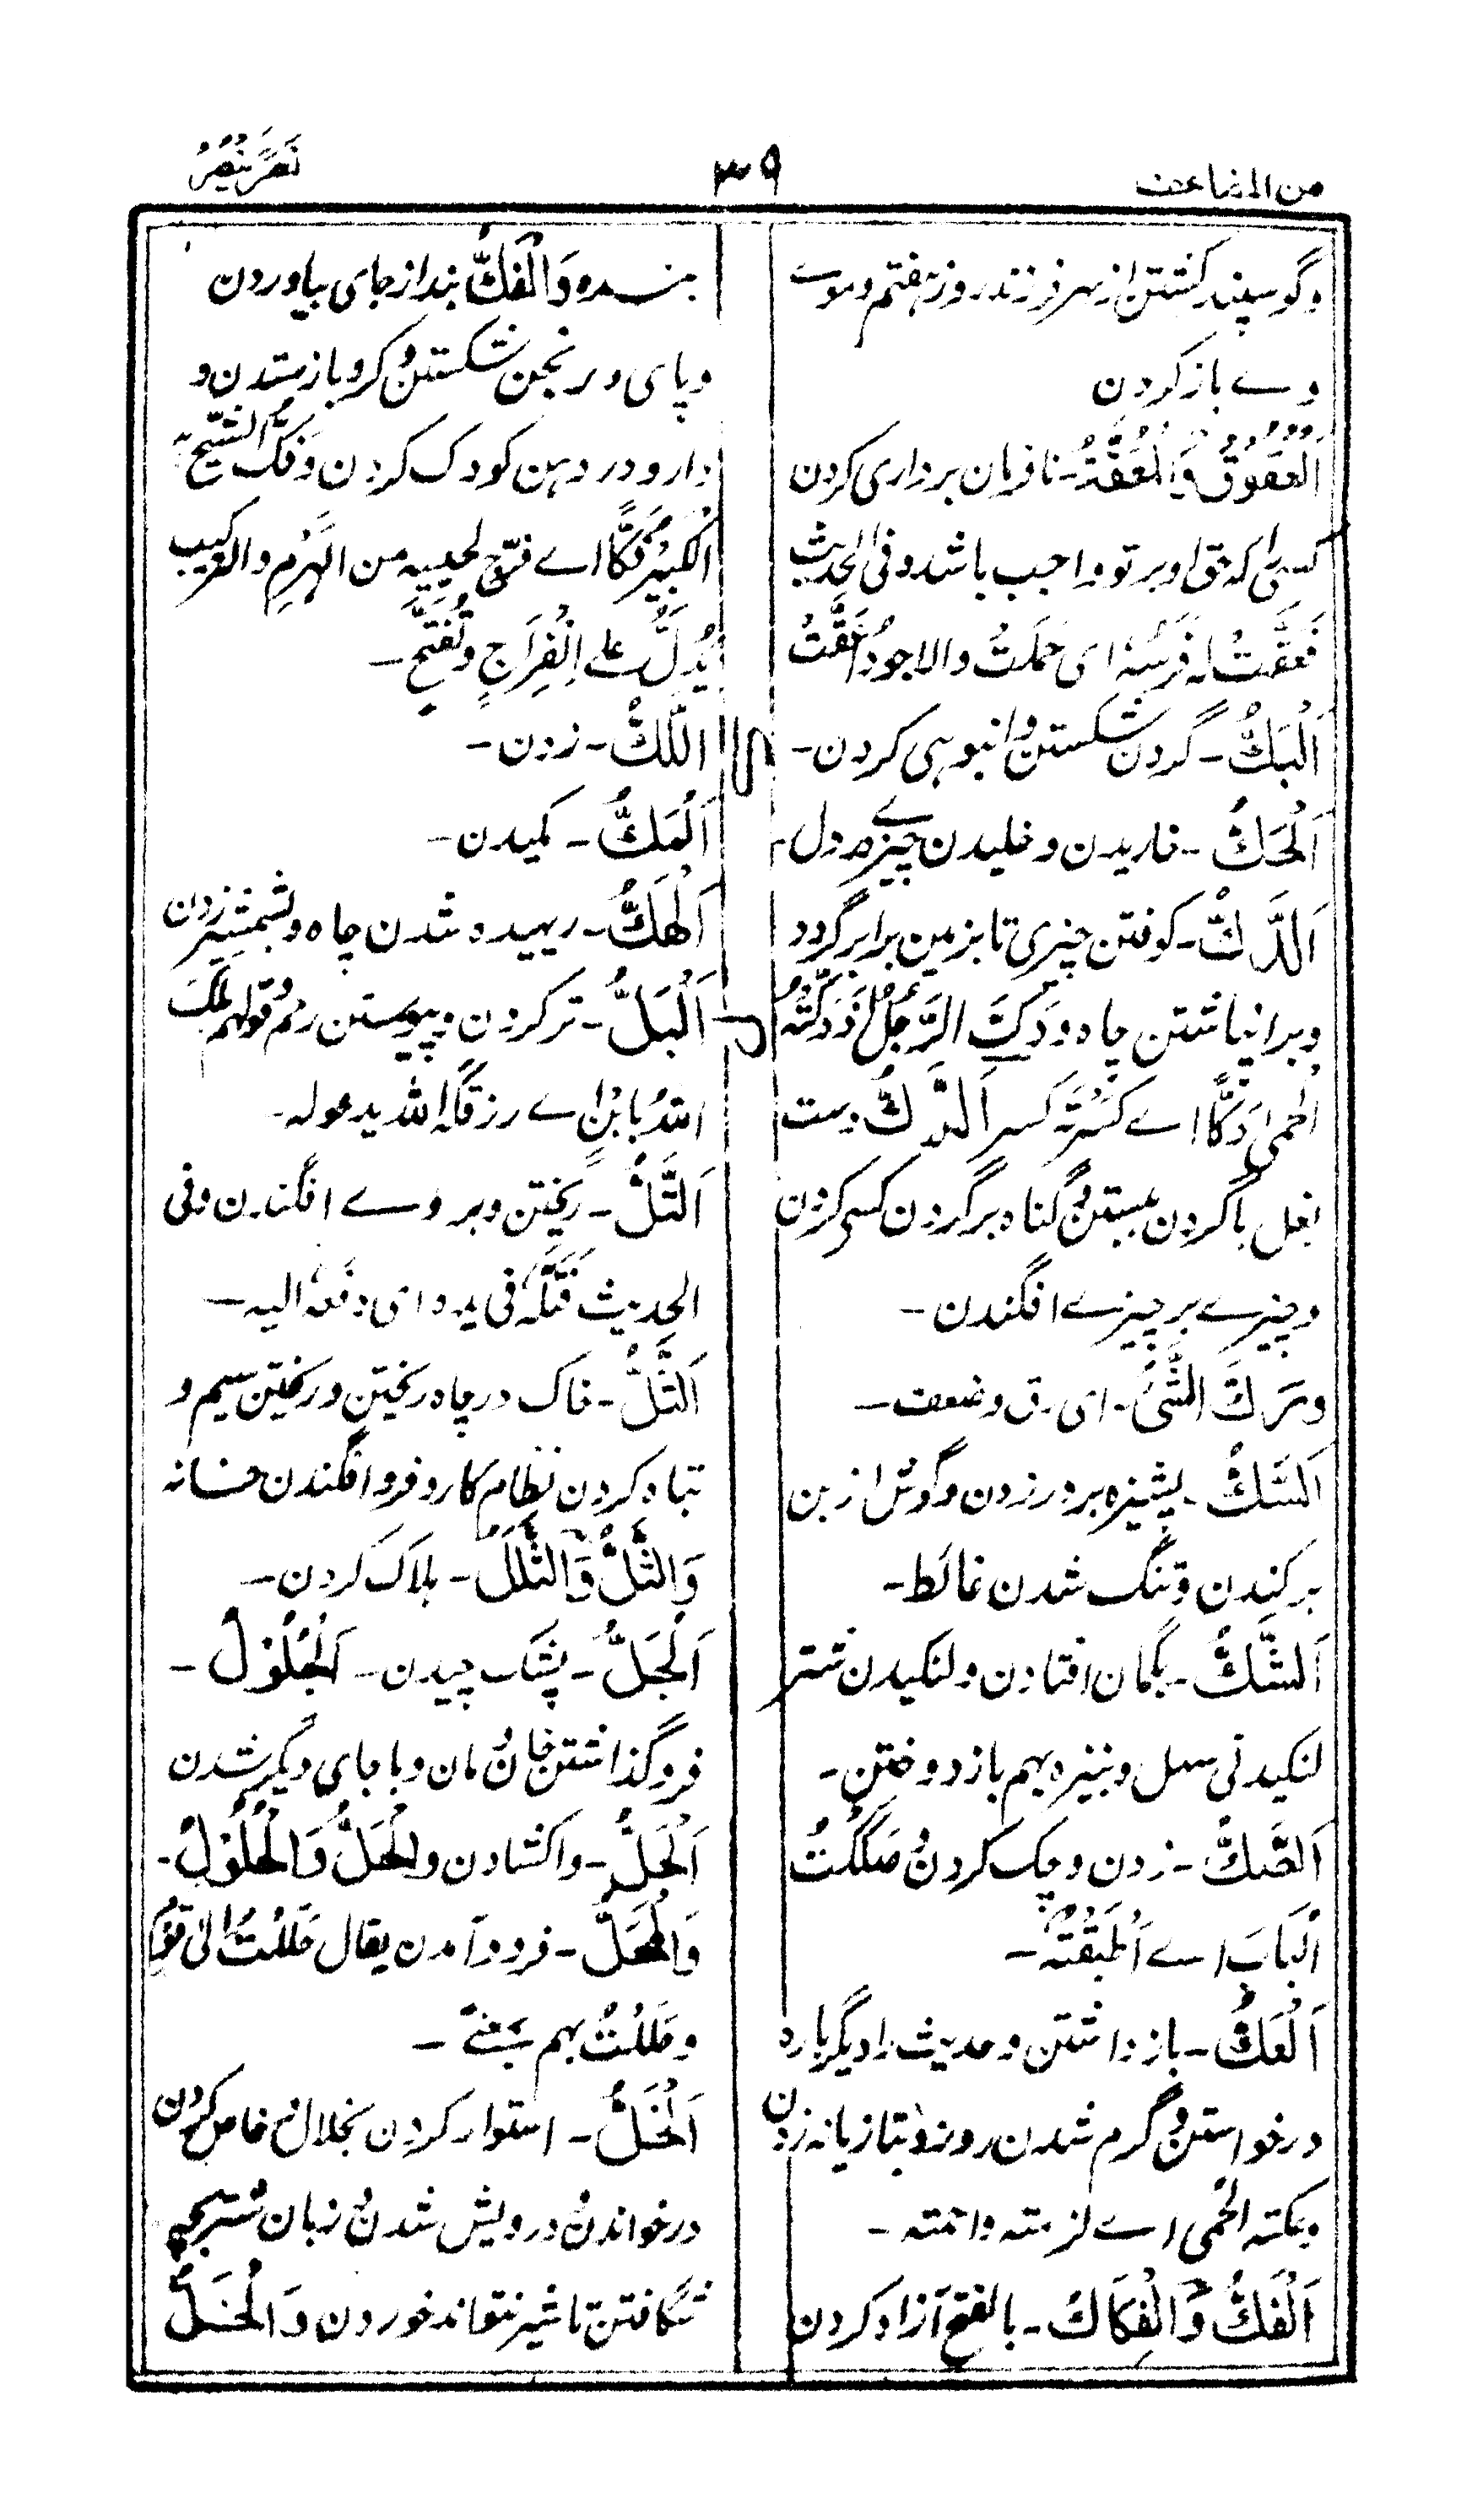 من المضاعف
۳۹
نَصَرَ يَنْصُرُ
وگوسپند کشتن از بهر فرزند روز هفتم وموے
وے باز کردن
اَلْعُقُوْقُ وَالْمَعَقَّةُ - نافرمان برداری کردن
کسی را که حق او بر تو واجب باشد وفی الحدیث
فَعَقَّتْ لہ فَرَسُہٗ ای حَمَلَتْ والاجودُ اَعَقَّتْ
اَلْبَكُّ - گردن شکستن وانبوہی کردن -
اَلْحَكُّ - خاریدن وخلیدن چیزے در دل -
اَلدَّكُّ - کوفتن چیزی تا بزمین برابر گردد
وبر انباشتن چاہ ودَكَّ الرَّجُلُ فَدَكَّتْہُ
الحمی دَكًّا اے کَسَرَتْہ کسر اَلدَّكُّ دست
بغل با گردن بستن وگناہ بر گردن کسی کردن
وچیزے بر چیزے افگندن -
ورَكَّ الشَّیُٔ - ای رق وضعف -
اَلسَّكُّ - پشیزہ بر در زدن وگوش از بن
بر کندن وتنگ شدن غائط -
اَلشَّكُّ - بگمان افتادن ولنگیدن شتر
لنگیدنی سہل وبنیزہ بہم باز دوختن -
اَلصَّكُّ - زدن وچک کردن صَكَكْتُ
الْبَابَ اے اَطْبَقْتُہٗ -
اَلْعَكُّ - باز داشتن وحدیث را دیگر بارہ
درخواستن وگرم شدن روز وبتازیانہ زدن
وعکتہ الحُمی اے لزمتہ واحمتہ -
اَلْفَكُّ وَالْفِكَاكُ - بالفتح آزاد کردن
بندہ وَالْفَكُّ بند از جای بیاوردن
وپای ورنجن شکستن وگرو باز ستدن و
دارو در دہن کودک کردن وَفَكَّ الشَّیْخُ
الْكَبِیْرُ فَكًّا اے فَرَّجَ لحییہ من الْہَرَمِ والترکیب
یَدُلُّ علی اِنْفِرَاجٍ وتَفَتُّحٍ -
اللَّكُّ - زدن -
اَلْمَكُّ - مکیدن -
اَلْہَكُّ - ریہیدہ شدن چاہ وبشمشیر زدن
اَلْبَلُّ - تر کردن وپیوستن رحم قولہم بَلَّكَ
اللّٰہُ بابْنٍ اے رزقکہ اللہ یدعولہ -
اَلتَّلُّ - ریختن وبر روے افگندن وفی
الحدیث فَتَلَّہٗ فی یدہ ای دفعہٗ الیہ -
اَلثَّلُّ - خاک در چاہ ریختن وریختن سیم و
تباہ کردن نظام کار وفرو افگندن خانہ
وَالثَّلُّ وَالثَّلَلُ - ہلاک کردن -
اَلْجَلُّ - پشک چیدن - اَلْجُلُوْلُ -
فرو گذاشتن خان ومان وبا جای دیگر شدن
اَلْحَلُّ - واکشادن والْحَلُّ وَالْحُلُوْلُ -
وَالْمَحَلُّ - فرود آمدن یقال حَلَلْتُ الْقَوْمَ
وحَلَلْتُ بہم بمعنے -
اَلْخَلُّ - استوار کردن بخلال وخاص کردن
درخواندن ودرویش شدن وزبان شتر بچہ
شگافتن تا شیر نتواند خوردن وَالْخَلُّ